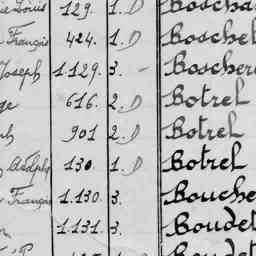 Louis 129. 1. D Boscha
François 424. 1. D Boschel
Joseph 1.129. 3. - Boschere
616. 2. D Botrel
901 2. D Botrel
Adolphe 130. 1. D Botrel
François 1.130. 3. Bouche
1.131. 3. Boudet
Boudet